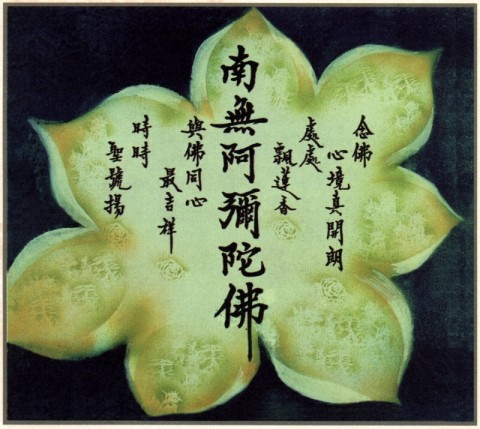 念佛
心境真開朗
處處
飄蓮香
南無阿彌陀佛
與佛同心
最吉祥
時時
聖號揚